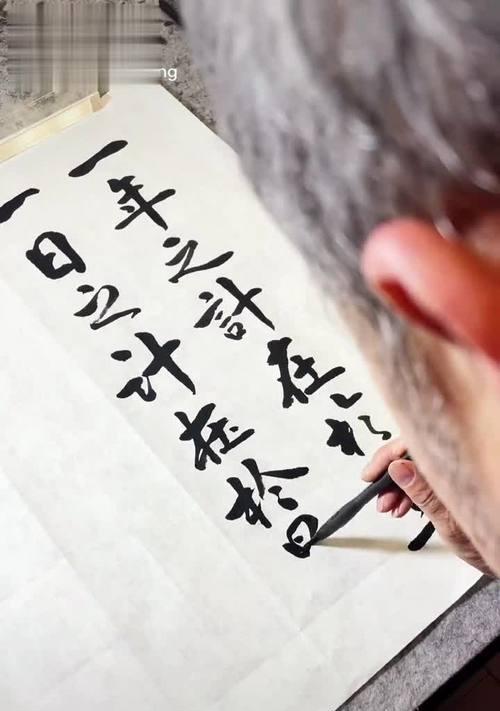 一年之計在於
一日之计在於日
ng